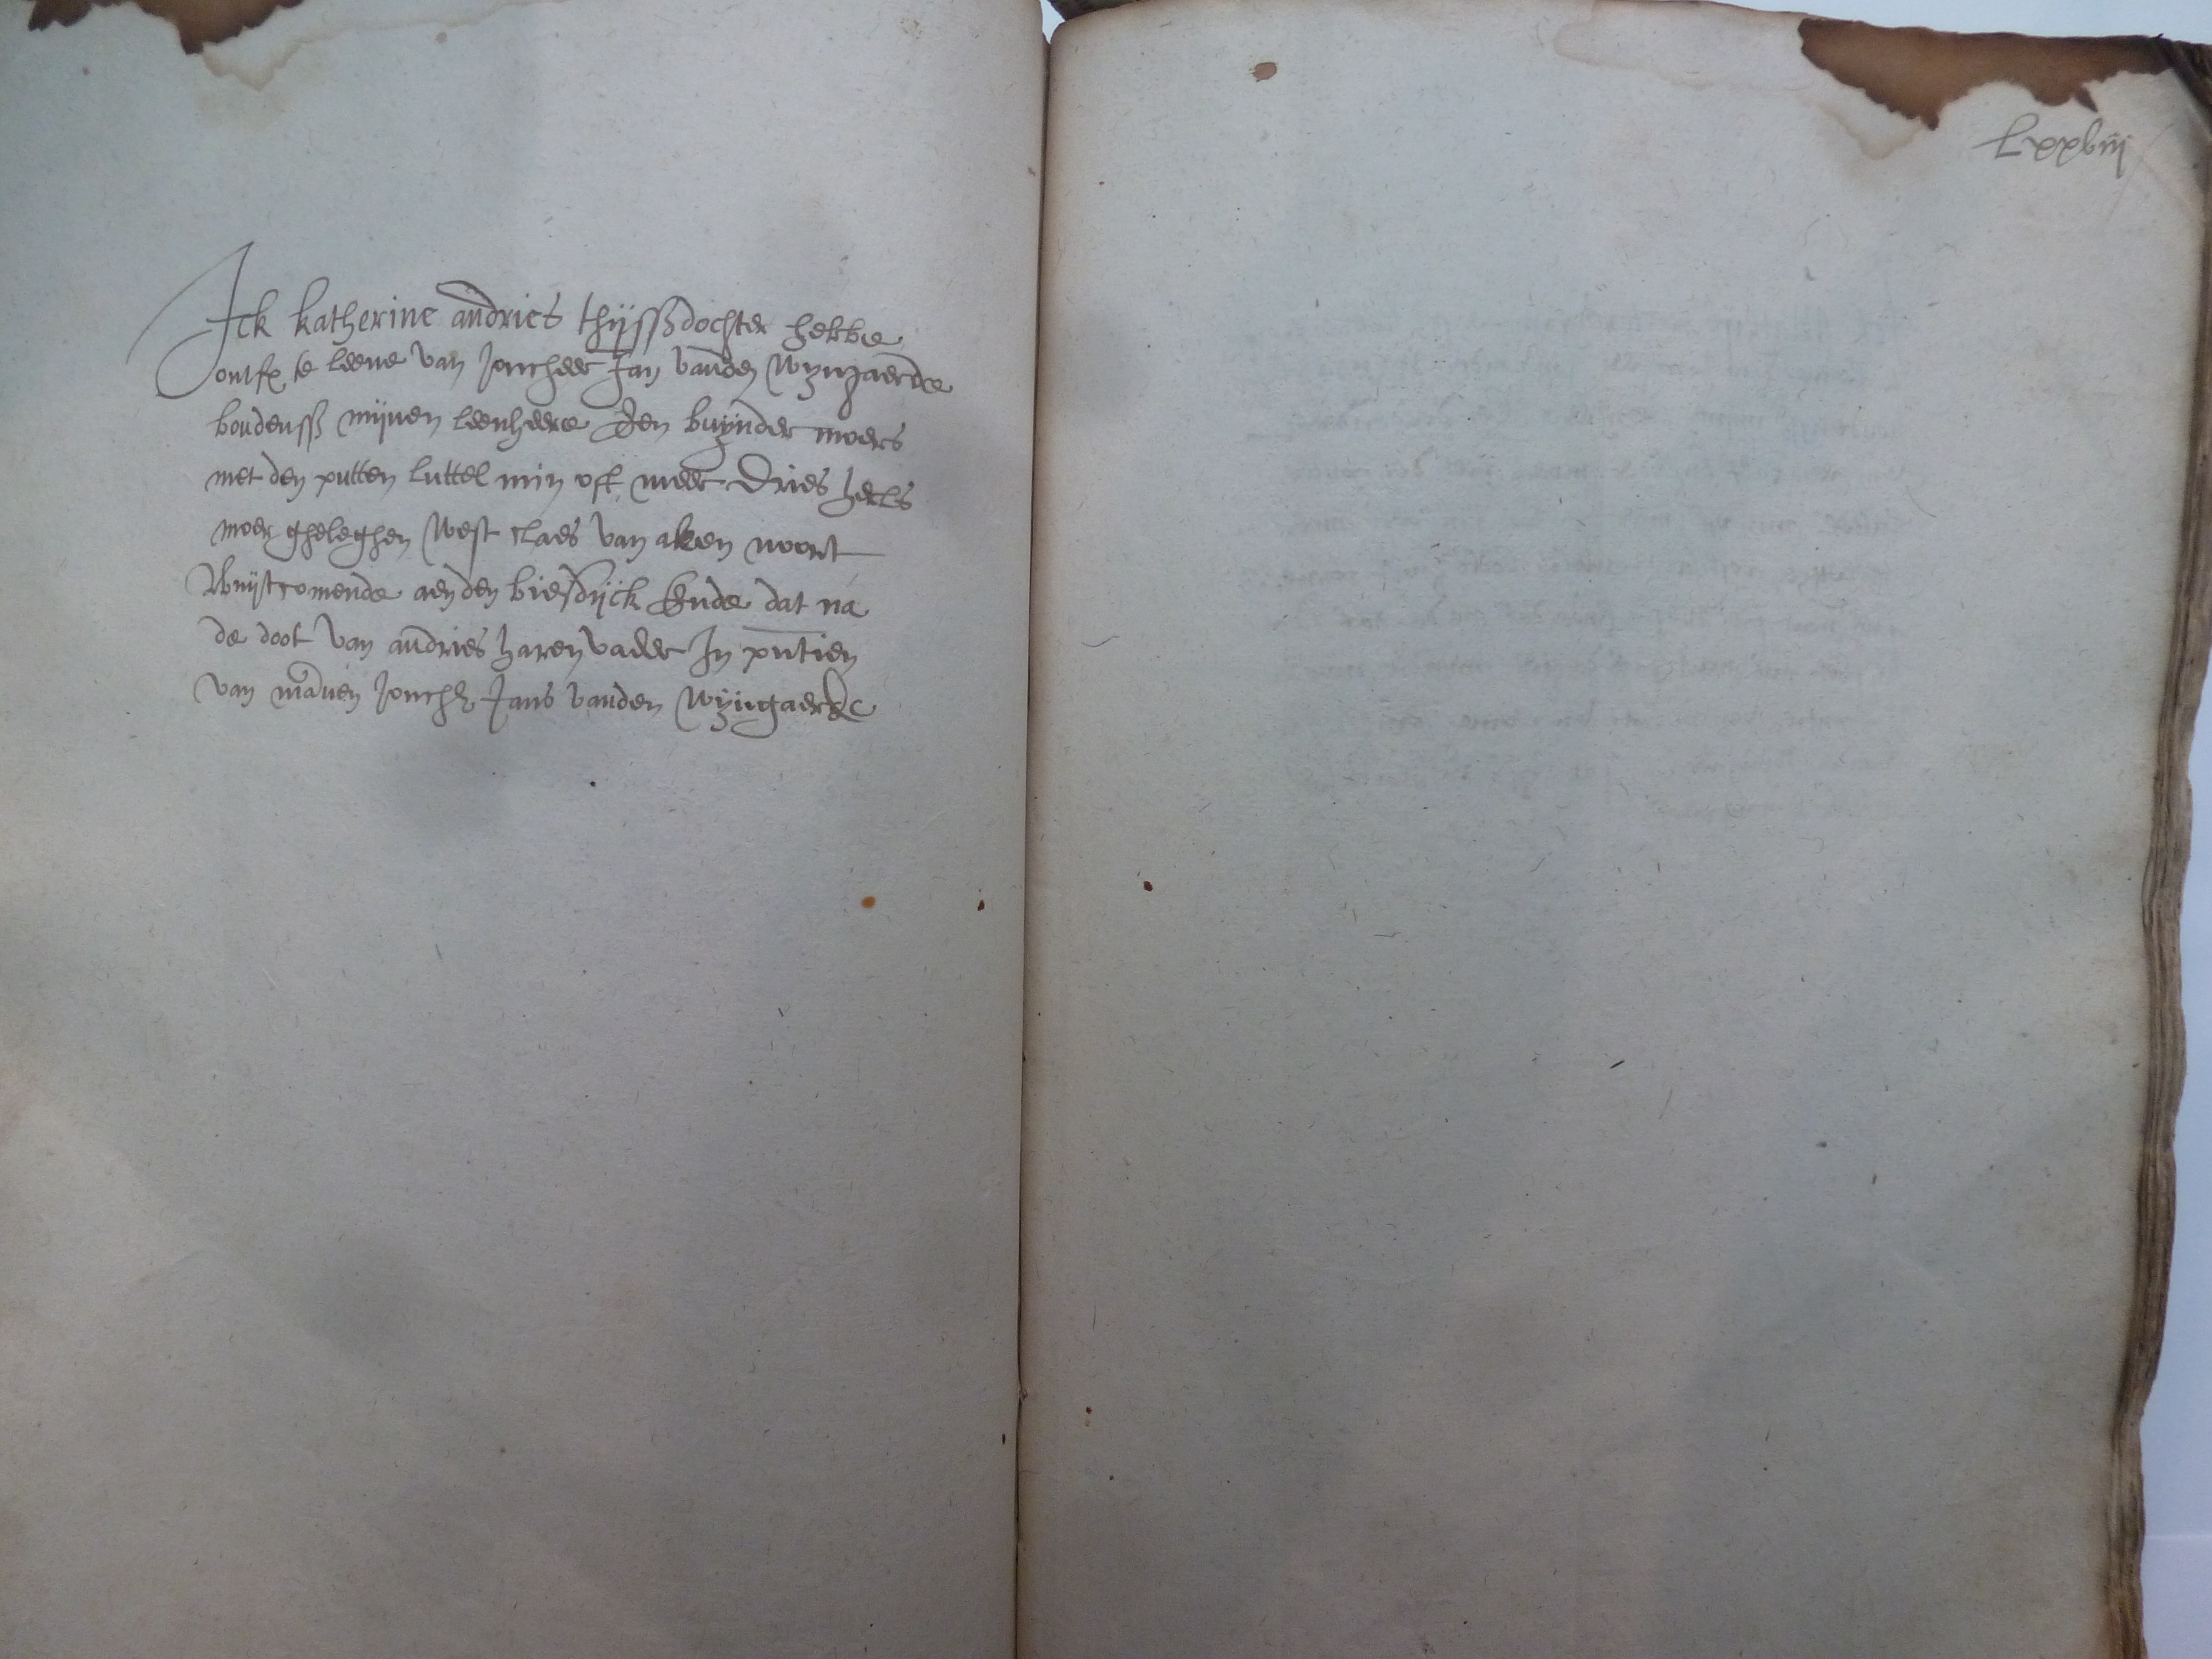 Ick katherine andries thijssdochter hebbe
ontf te leene van joncheer Jan vanden wyngaerde
boudenss mijnen leenheere Een buynder moers
met den putten luttel min oft meer Dries hecls
moer gheleghen west claes van aken noort
wuijtcomende aen den biesdijck Ende dat na
de doot van andries haren vader In pntien
van mannen jonch Jans vanden wyngaerde
Lxxviij